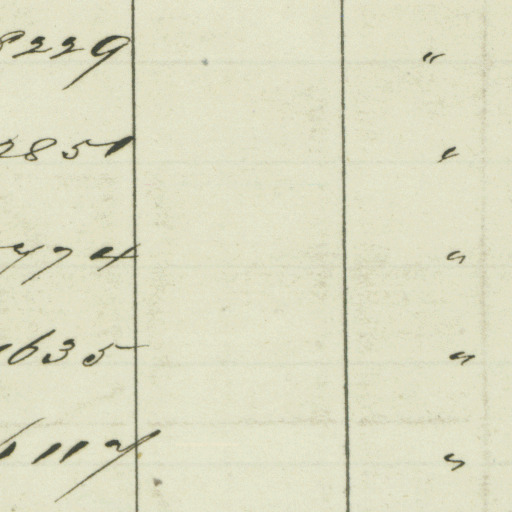 8229 "
2851 "
774 "
1635 "
1117 "